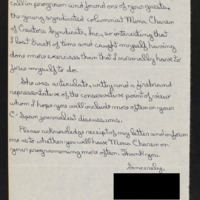 call in program and found one of your guests,
the young syndicated columnist Mona Charen
of Creators Syndicate, Inc., so interesting that
I lost track of time and caught myself having
done more exercises than that I normally have to
force myself to do.
She was articulate, witty, and a firebrand
representative of the conservative point of view
whom I hope you will include more often in your
C-Span journalist discussions.
Please acknowledge receipt of my letter and inform
me as to whether you will have Mona Charen on
your programming more often. Thank you.
Sincerely,